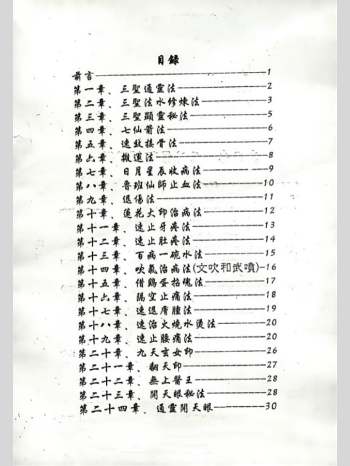 目錄
前言 1
第一章、三聖通靈法 2
第二章、三聖法水修煉法 3
第三章、三聖顯靈秘法 5
第四章、七仙箭法 6
第五章、速效接骨法 7
第六章、搬運法 8
第七章、日月星辰收病法 9
第八章、魯班仙師止血法 10
第九章、退傷法 11
第十章、蓮花大師治病法 12
第十一章、速止牙疼法 13
第十二章、速止肚疼法 14
第十三章、百病一碗水法 15
第十四章、吹氣治病法(文吹和武噴) 16
第十五章、借鷄蛋招魂法 17
第十六章、隔空止痛法 18
第十七章、速退膚腫法 19
第十八章、速治火燒水燙法 20
第十九章、速止腰痛法 20
第二十章、九天玄女印 26
第二十一章、翻天印 27
第二十二章、無上醫王 28
第二十三章、開天眼秘法 28
第二十四章、通靈開天眼 30